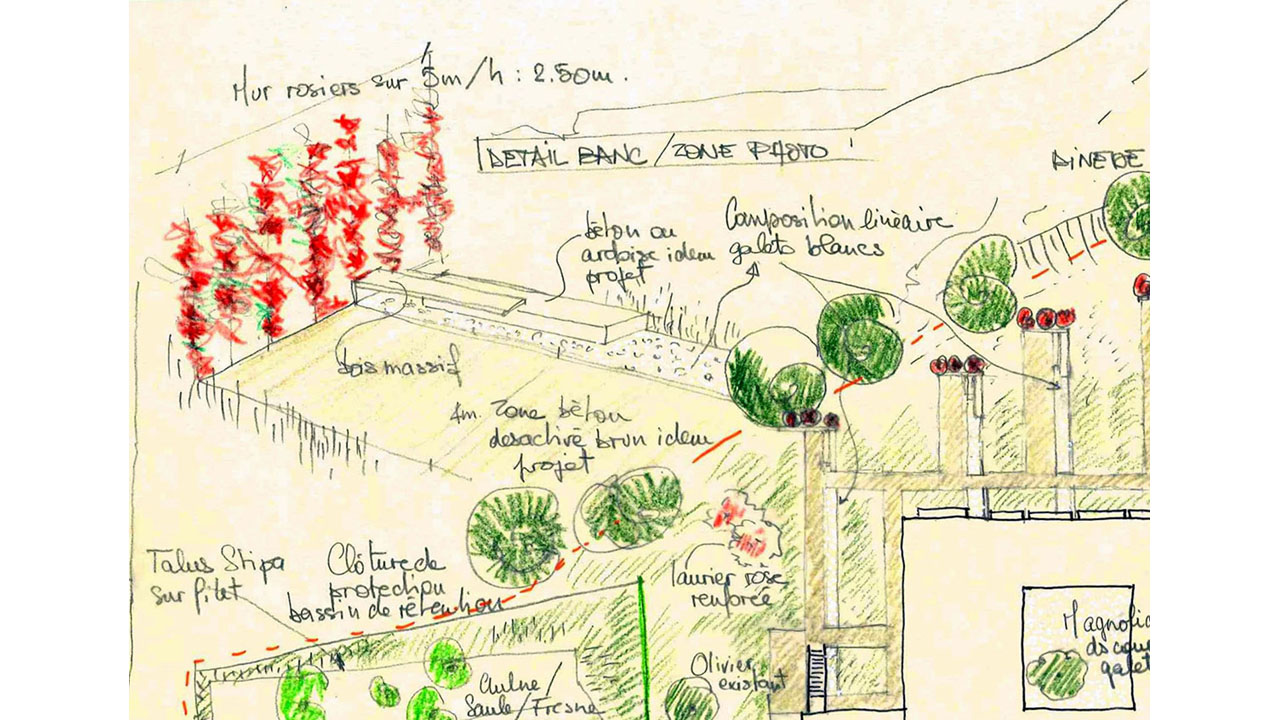 Mur rosiers sur 5m/h : 2.50m.
DETAIL BANC/ZONE PHOTO
PINEDE
béton ou
ardoise idem
projet
Composition linéaire
galets blancs
bois massif
4m. Zone béton
desactivé brun idem
projet
Talus Stipa
sur filet
Clôture de
protection
bassin de rétention
laurier rose
renforcée
Olivier
existant
Magnolia
ds cour
galet
Saule/Fresne